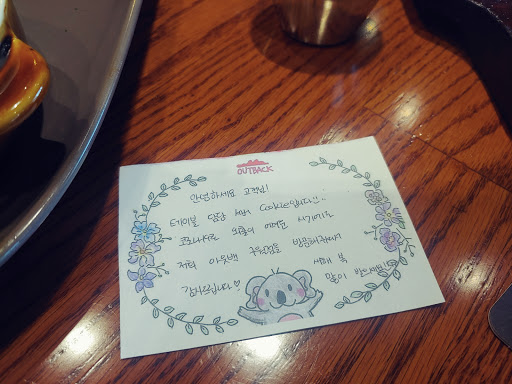 OUTBACK
안녕하세요 고객님!
테이블 담당 서버 Cookie입니다!!
코로나로 모두들 어려운 시기에도
저희 아웃백 구월점을 방문해주셔서
감사드립니다♡ 새해 복
많이 받으세요!